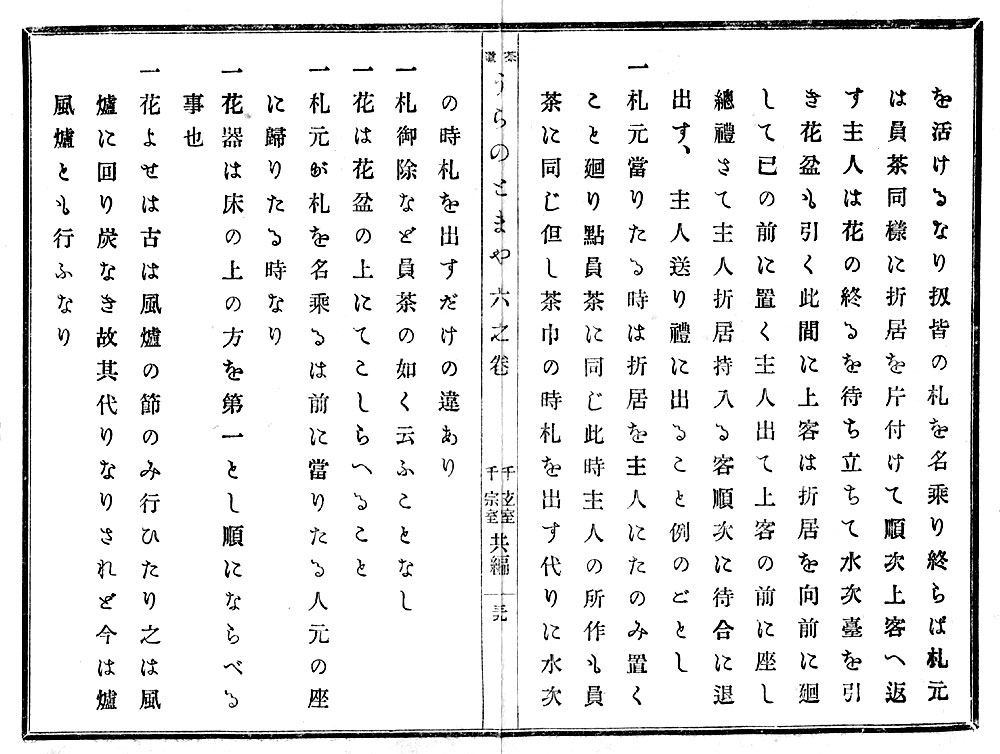 を活けるなり扨皆の札を名乘り終らば札元
は員茶同樣に折居を片付けて順次上客へ返
す主人は花の終るを待ち立ちて水次臺を引
き花盆も引く此間に上客は折居を向前に廻
して已の前に置く主人出て上客の前に座し
總禮さて主人折居持入る客順次に待合に退
出す、主人送り禮に出ること例のごとし
一札元當りたる時は折居を主人にたのみ置く
こと廻り點員茶に同じ此時主人の所作も員
茶に同じ但し茶巾の時札を出す代りに水次
茶道うらのとまや六之卷 千玄室千宗室共編 三九
の時札を出すだけの違あり
一札御除など員茶の如く云ふことなし
一花は花盆の上にてこしらへること
一札元が札を名乘るは前に當りたる人元の座
に歸りたる時なり
一花器は床の上の方を第一とし順にならべる
事也
一花よせは古は風爐の節のみ行ひたり之は風
爐に回り炭なき故其代りなりされど今は爐
風爐とも行ふなり